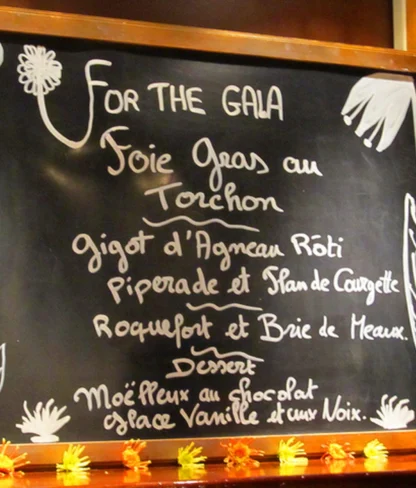 FOR THE GALA
Foie Gras au
Torchon
Gigot d'Agneau Rôti
Piperade et Flan de Courgette
Roquefort et Brie de Meaux.
Dessert
Moëlleux au chocolat
glace Vanille et aux Noix.